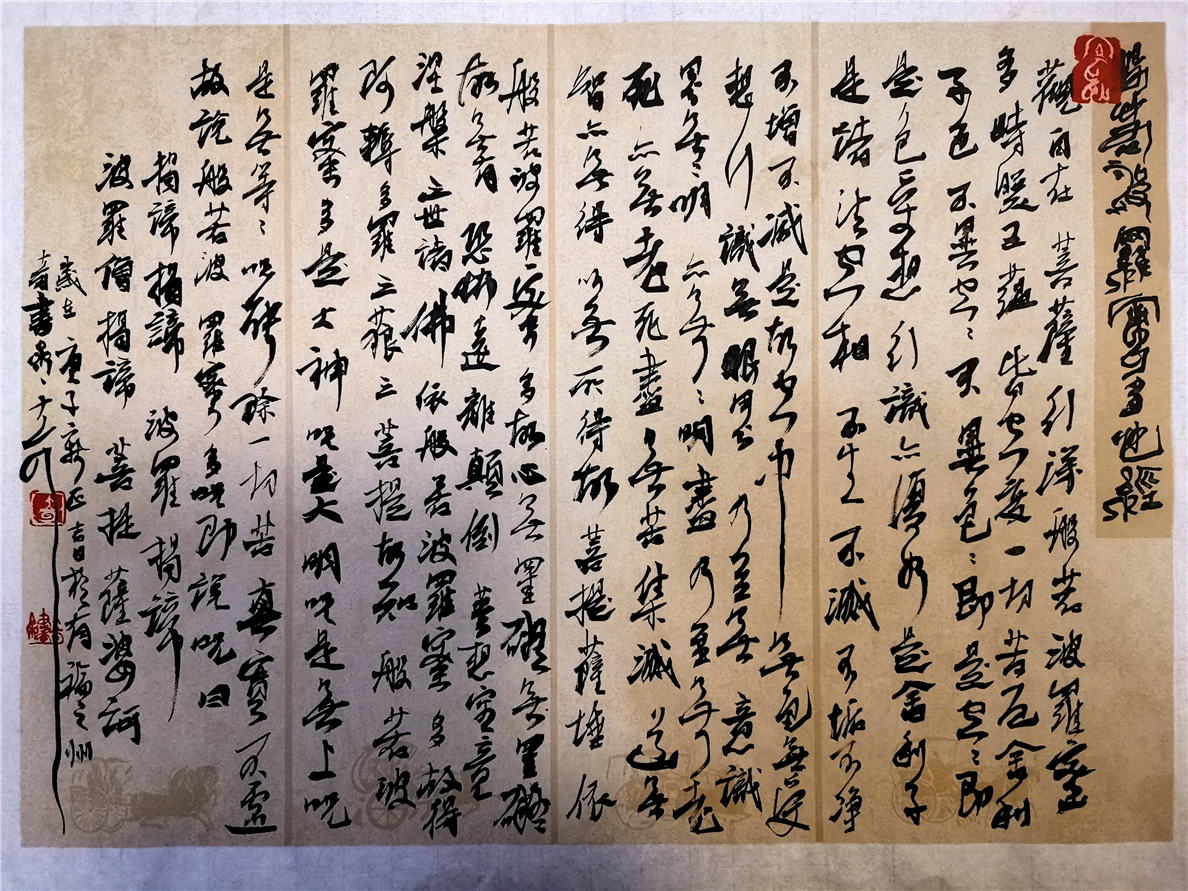 般若波羅蜜多心經
觀自在菩薩行深般若波羅蜜
多時照五蘊皆空度一切苦厄舍利
子色不異空〻不異色〻即是空〻即
是色受想行識亦復如是舍利子
是諸法空相不生不滅不垢不淨
不增不減是故空中無色無受
想行識無眼界乃至無意識
界無〻明亦無〻明盡乃至無老
死亦無老死盡無苦集滅道無
智亦無得以無所得故菩提薩埵依
般若波羅蜜多故心無罣礙無罣礙
故無有恐怖遠離顛倒夢想究竟
涅槃三世諸佛依般若波羅蜜多故得
阿耨多羅三藐三菩提故知般若波
羅蜜多是大神咒是大明咒是無上咒
是無等〻咒能除一切苦真實不虛
故說般若波羅蜜多咒即說咒曰
揭諦揭諦波羅揭諦
波羅僧揭諦菩提薩婆訶
歲在庚子新正吉日於有福之州
書